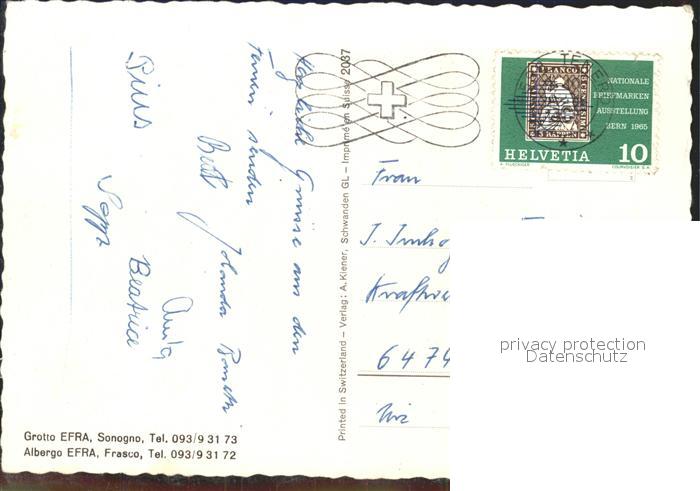 Herzliche Grüsse aus den
Ferien senden
Beat Jolanda
Pius Anita
Sepp Beatrice
Grotto EFRA, Sonogno, Tel. 093/9 31 73
Albergo EFRA, Frasco, Tel. 093/9 31 72
Printed in Switzerland – Verlag: A. Kiener, Schwanden GL – Imprimé en Suisse 2037
FRANCO
5 RAPPEN
NATIONALE
BRIEFMARKEN
AUSSTELLUNG
BERN 1965
HELVETIA 10
COURVOISIER S.A.
Frau
J. Imhof
6474
privacy protection
Datenschutz